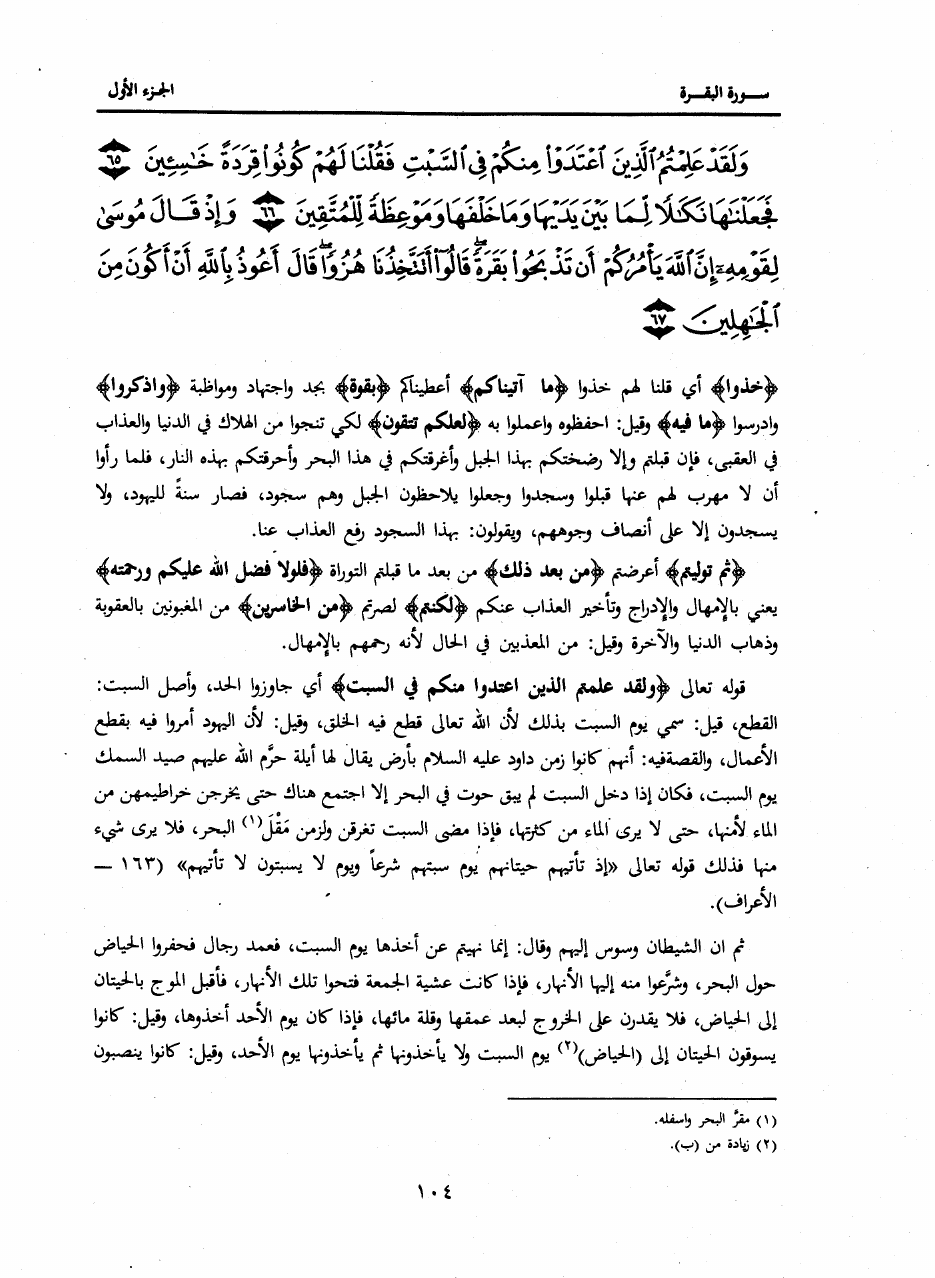 سورة البقرة
الجزء الأول
وَلَقَدْ عَلِمْتُمُ ٱلَّذِينَ ٱعْتَدَوْا۟ مِنكُمْ فِى ٱلسَّبْتِ فَقُلْنَا لَهُمْ كُونُوا۟ قِرَدَةً خَٰسِـِٔينَ ٦٥
فَجَعَلْنَٰهَا نَكَٰلًا لِّمَا بَيْنَ يَدَيْهَا وَمَا خَلْفَهَا وَمَوْعِظَةً لِّلْمُتَّقِينَ ٦٦ وَإِذْ قَالَ مُوسَىٰ
لِقَوْمِهِۦٓ إِنَّ ٱللَّهَ يَأْمُرُكُمْ أَن تَذْبَحُوا۟ بَقَرَةً ۖ قَالُوٓا۟ أَتَتَّخِذُنَا هُزُوًا ۖ قَالَ أَعُوذُ بِٱللَّهِ أَنْ أَكُونَ مِنَ
ٱلْجَٰهِلِينَ ٦٧
﴿خذوا﴾ أي قلنا لهم خذوا ﴿ما آتيناكم﴾ أعطيناكم ﴿بقوة﴾ بجد واجتهاد ومواظبة ﴿واذكروا﴾
وادرسوا ﴿ما فيه﴾ وقيل: احفظوه واعملوا به ﴿لعلكم تتقون﴾ لكي تنجوا من الهلاك في الدنيا والعذاب
في العقبى، فإن قبلتم وإلا رضختكم بهذا الجبل وأغرقتكم في هذا البحر وأحرقتكم بهذه النار، فلما رأوا
أن لا مهرب لهم عنها قبلوا وسجدوا وجعلوا يلاحظون الجبل وهم سجود، فصار سنةً لليهود، ولا
يسجدون إلا على أنصاف وجوههم، ويقولون: بهذا السجود رفع العذاب عنا.
﴿ثم توليتم﴾ أعرضتم ﴿من بعد ذلك﴾ من بعد ما قبلتم التوراة ﴿فلولا فضل الله عليكم ورحمته﴾
يعني بالإمهال والإدراج وتأخير العذاب عنكم ﴿لكنتم﴾ لصرتم ﴿من الخاسرين﴾ من المغبونين بالعقوبة
وذهاب الدنيا والآخرة وقيل: من المعذبين في الحال لأنه رحمهم بالإمهال.
قوله تعالى ﴿ولقد علمتم الذين اعتدوا منكم في السبت﴾ أي جاوزوا الحد، وأصل السبت:
القطع، قيل: سمي يوم السبت بذلك لأن الله تعالى قطع فيه الخلق، وقيل: لأن اليهود أمروا فيه بقطع
الأعمال، والقصةفيه: أنهم كانوا زمن داود عليه السلام بأرض يقال لها أيلة حرَّم الله عليهم صيد السمك
يوم السبت، فكان إذا دخل السبت لم يبق حوت في البحر إلا اجتمع هناك حتى يخرجن خراطيمهن من
الماء لأمنها، حتى لا يرى الماء من كثرتها، فإذا مضى السبت تفرقن ولزمن مَقْلَ(١) البحر، فلا يرى شيء
منها فذلك قوله تعالى «إذ تأتيهم حيتانهم يوم سبتهم شرعاً ويوم لا يسبتون لا تأتيهم» (١٦٣ —
الأعراف).
ثم ان الشيطان وسوس إليهم وقال: إنما نهيتم عن أخذها يوم السبت، فعمد رجال فحفروا الحياض
حول البحر، وشرَّعوا منه إليها الأنهار، فإذا كانت عشية الجمعة فتحوا تلك الأنهار، فأقبل الموج بالحيتان
إلى الحياض، فلا يقدرن على الخروج لبعد عمقها وقلة مائها، فإذا كان يوم الأحد أخذوها، وقيل: كانوا
يسوقون الحيتان إلى (الحياض)(٢) يوم السبت ولا يأخذونها ثم يأخذونها يوم الأحد، وقيل: كانوا ينصبون
(١) مقرَّ البحر واسفله.
(٢) زيادة من (ب).
١٠٤